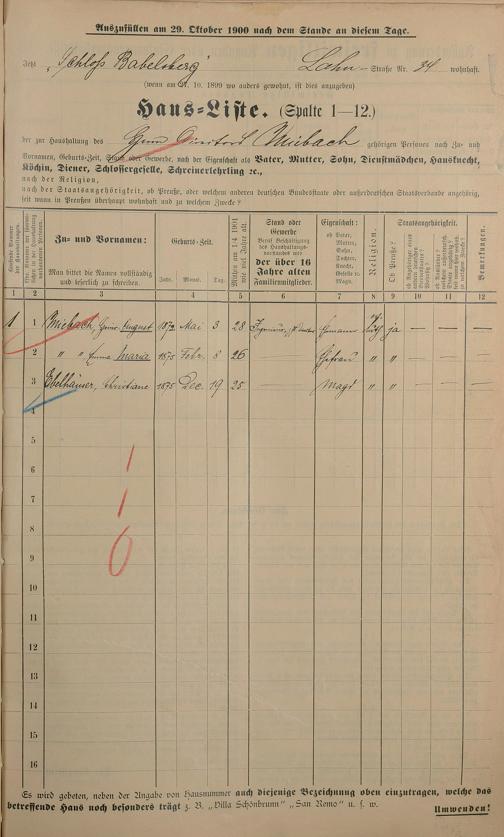 Auszufüllen am 29. Oktober 1900 nach dem Stande an diesem Tage.
Jetzt „Schloß Babelsberg" Lahn-Straße Nr. 34 wohnhaft.
(wenn am 27. 10. 1899 wo anders gewohnt, ist dies anzugeben)
Haus-Liste. (Spalte 1—12.)
der zur Haushaltung des Miebach gehörigen Personen nach Zu- und
Vornamen, Geburts-Zeit, Stand oder Gewerbe, nach der Eigenschaft als Vater, Mutter, Sohn, Dienstmädchen, Hausknecht,
Köchin, Diener, Schlossergeselle, Schreinerlehrling ꝛc.,
nach der Religion,
nach der Staatsangehörigkeit, ob Preuße, oder welchem anderen deutschen Bundesstaate oder außerdeutschem Staatsverbande angehörig,
seit wann in Preußen überhaupt wohnhaft und zu welchem Zwecke?
Zu- und Vornamen:
Man bittet die Namen vollständig
und leserlich zu schreiben.
Geburts-Zeit.
Jahr. Monat. Tag.
Stand oder
Gewerbe
der über 16
Jahre alten
Familienmitglieder.
Eigenschaft:
ob Vater,
Mutter,
Sohn,
Tochter,
Knecht,
Magd.
Religion.
Staatsangehörigkeit.
Ob Preuße?
Bemerkungen.
1 2 3 4 5 6 7 8 9 10 11 12
1 1 Miebach, August Mai 3 28 ja — — —
2 " " Emma Maria 1875 Febr. 8 26 — Ehefrau " " — — —
3 Ebelhäuser, Christiane 1875 Dec. 19 25 — Magd " " — — —
4
5
6
7
8
9
10
11
12
13
14
15
16
1
1
0
Es wird gebeten, neben der Angabe von Hausnummer auch diejenige Bezeichnung oben einzutragen, welche das
betreffende Haus noch besonders trägt z. B. „Villa Schönbrunn" „San Remo" u. s. w.
Umwenden!